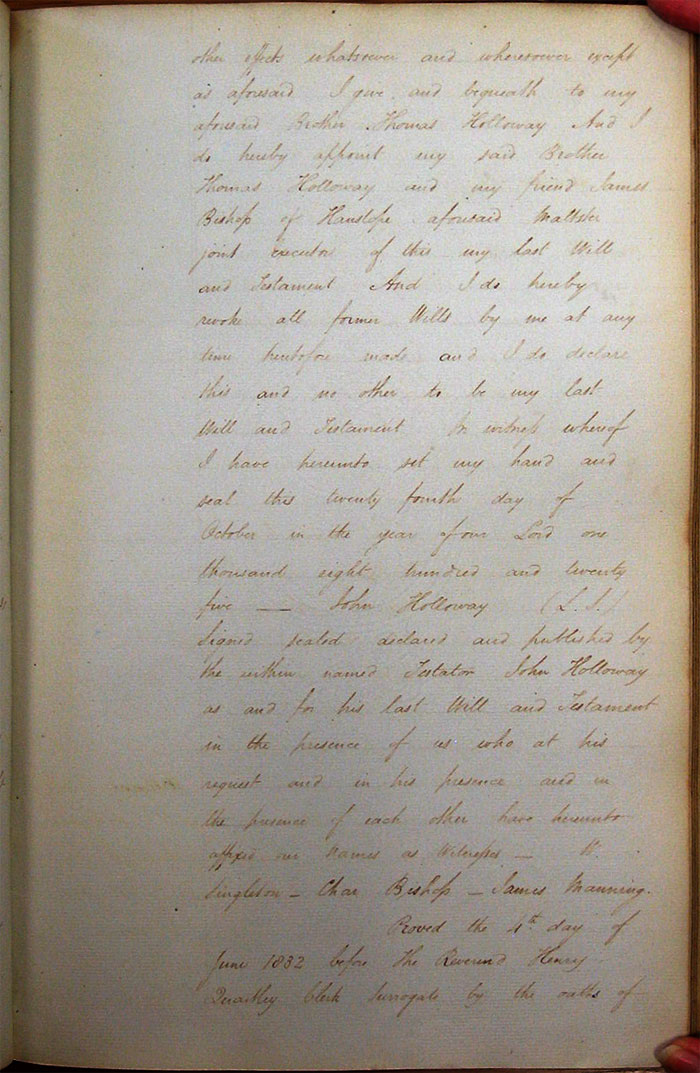 other effects whatsoever and wheresoever except
as aforesaid I give and bequeath to my
aforesaid Brother Thomas Holloway And I
do hereby appoint my said Brother
Thomas Holloway and my friend James
Bishop of Hanslope aforesaid Maltster
joint executors of this my last Will
and Testament And I do hereby
revoke all former Wills by me at any
time heretofore made and I do declare
this and no other to be my last
Will and Testament In witness whereof
I have hereunto set my hand and
seal this twenty fourth day of
October in the year of our Lord one
thousand eight hundred and twenty
five — John Holloway (L. S.)
Signed sealed declared and published by
the within named Testator John Holloway
as and for his last Will and Testament
in the presence of us who at his
request and in his presence and in
the presence of each other have hereunto
affixed our names as Witnesses — W.
Singleton – Chas Bishop – James Manning.
Proved the 4th day of
June 1832 before the Reverend Henry
Quartley Clerk Surrogate by the oaths of